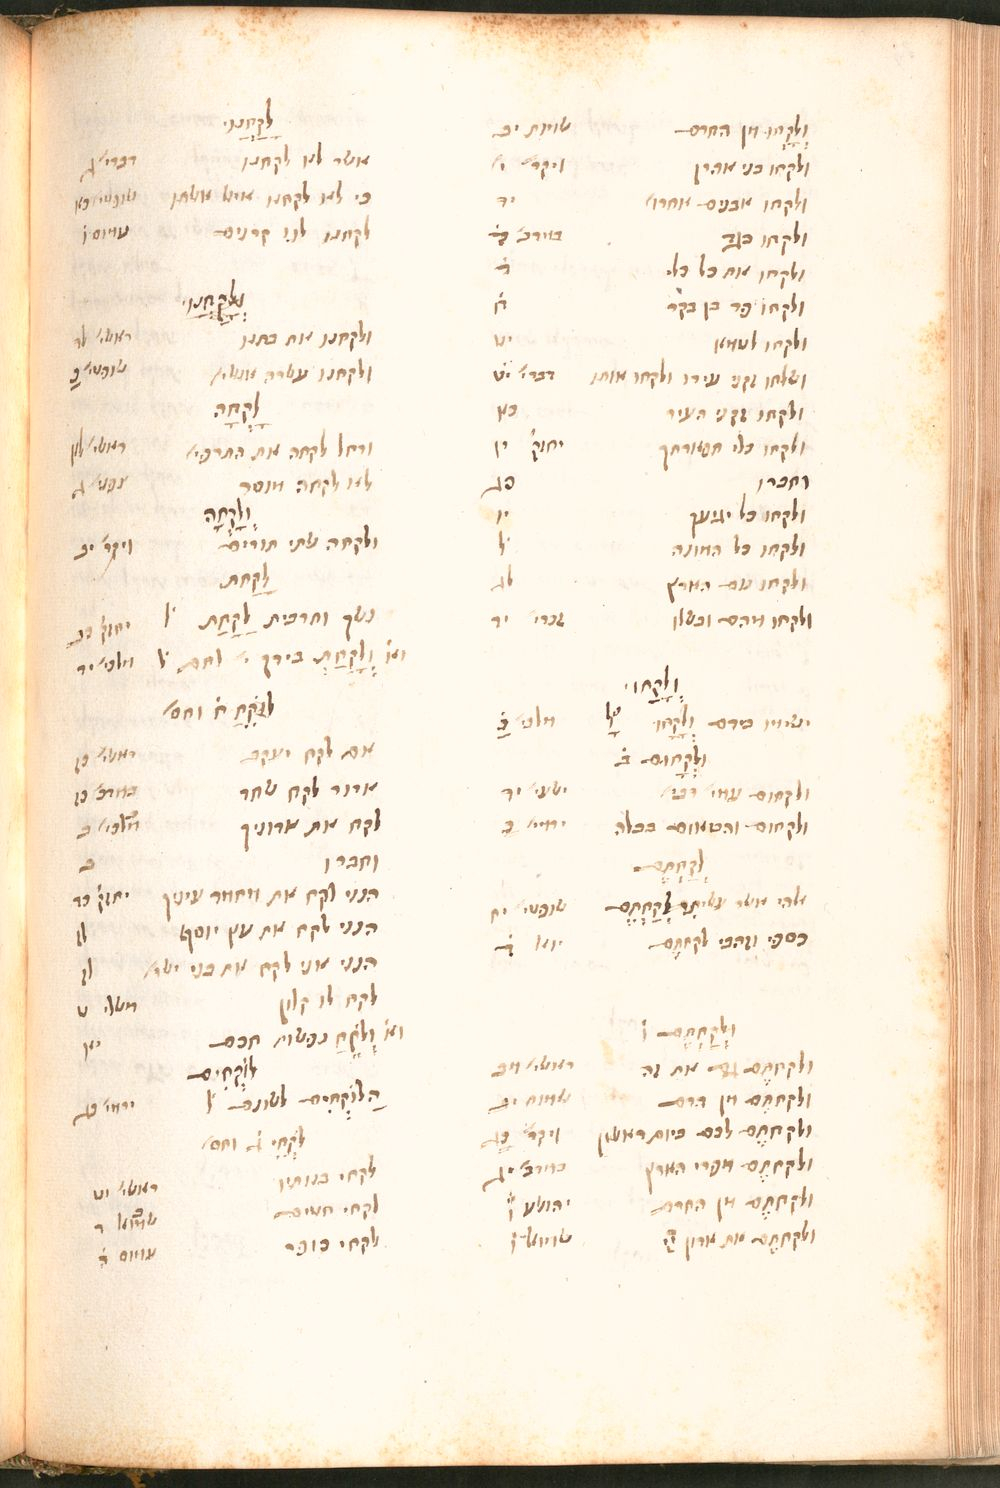 וְלָקְחוּ מן הדם שמות יב
ולקחו בני אהרן ויקר׳ י׳
ולקחו אבנים אחרו׳ יד
ולקחו בגד במדב׳ ד
ולקחו את כל כלי ד
ולקחו פר בן בקר ח
ולקחו לטמא יט
ושלחו זקני עירו ולקחו אותו דברי׳ יט
ולקחו זקני העיר כא
ולקחו כלי תפארתך יחזק׳
וחברו כג
ולקחו כל יגיעך
ולקחו כל המונה ל
ולקחו עם הארץ לג
ולקחו מהם וכשלו זכרי׳ יד
וְלָקָחוּ
ישימו בידם וְלָקָחוּ ל מלכי׳ כ
וּלְקָחוּם ב
ולקחום עמי׳ רבי׳ ישעי׳ יד
ולקחום והביאום בבלה ירמי׳ כ
לְקַחְתֶּם
אלהי אשר עשיתי לְקַחְתֶּם שופטי׳ יח
כספי וזהבי לקחתם יואל ד
וּלְקַחְתֶּם ו
ולקחתם גם את זה ראשי׳ מד
ולקחתם מן הדם שמות יב
ולקחתם לכם ביום ראשון ויקר׳ כג
ולקחתם מפרי הארץ במדב׳ יג
ולקחתם מן החרם יהושע ו
ולקחתם את ארון יי שמוא׳ ו
לְקָחָנוּ
אשר לא לקחנו דברי׳ ג
כי לא לקחנו איש אשתו שופטי׳ כא
לקחנו לנו קרנים עמוס ו
וְלָקַחְנוּ
ולקחנו את בתנו ראשי׳ לד
ולקחנו עשרה אנשי׳ שופטי׳ כ
לָקְחָה
ורחל לקחה את התרפי׳ ראשי׳ לא
לא לקחה מוסר צפני׳ ג
וְלָקְחָה
ולקחה שתי תורים ויקר׳ יב
לָקַחַת
נשך ותרבית לָקַחַת ל יחזק׳ כב
וא׳ וְלָקַחַתְּ בידך י׳ לחם ל מלכי׳ יד
לֹקֵחַ ח וחס׳
אם לקח יעקב ראשי׳ כז
ארור לקח שחד במדב׳ כז
לקח את אדוניך מלכי׳ ב
וחברו ב
הנני לקח את מחמד עיניך יחזק׳ כד
הנני לקח את עץ יוסף לז
הנני אני לקח את בני ישר׳ לז
לקח לו קלון משלי ט
וא׳ וְלֹקֵחַ נפשות חכם יא
לוֹקְחִים
הַלּוֹקְחִים לשונם ל ירמי׳ כג
לֹקְחֵי ג וחס׳
לקחי בנותיו ראשי׳ יט
לקחי חטים שמוא׳ ד
לקחי כופר עמוס ה